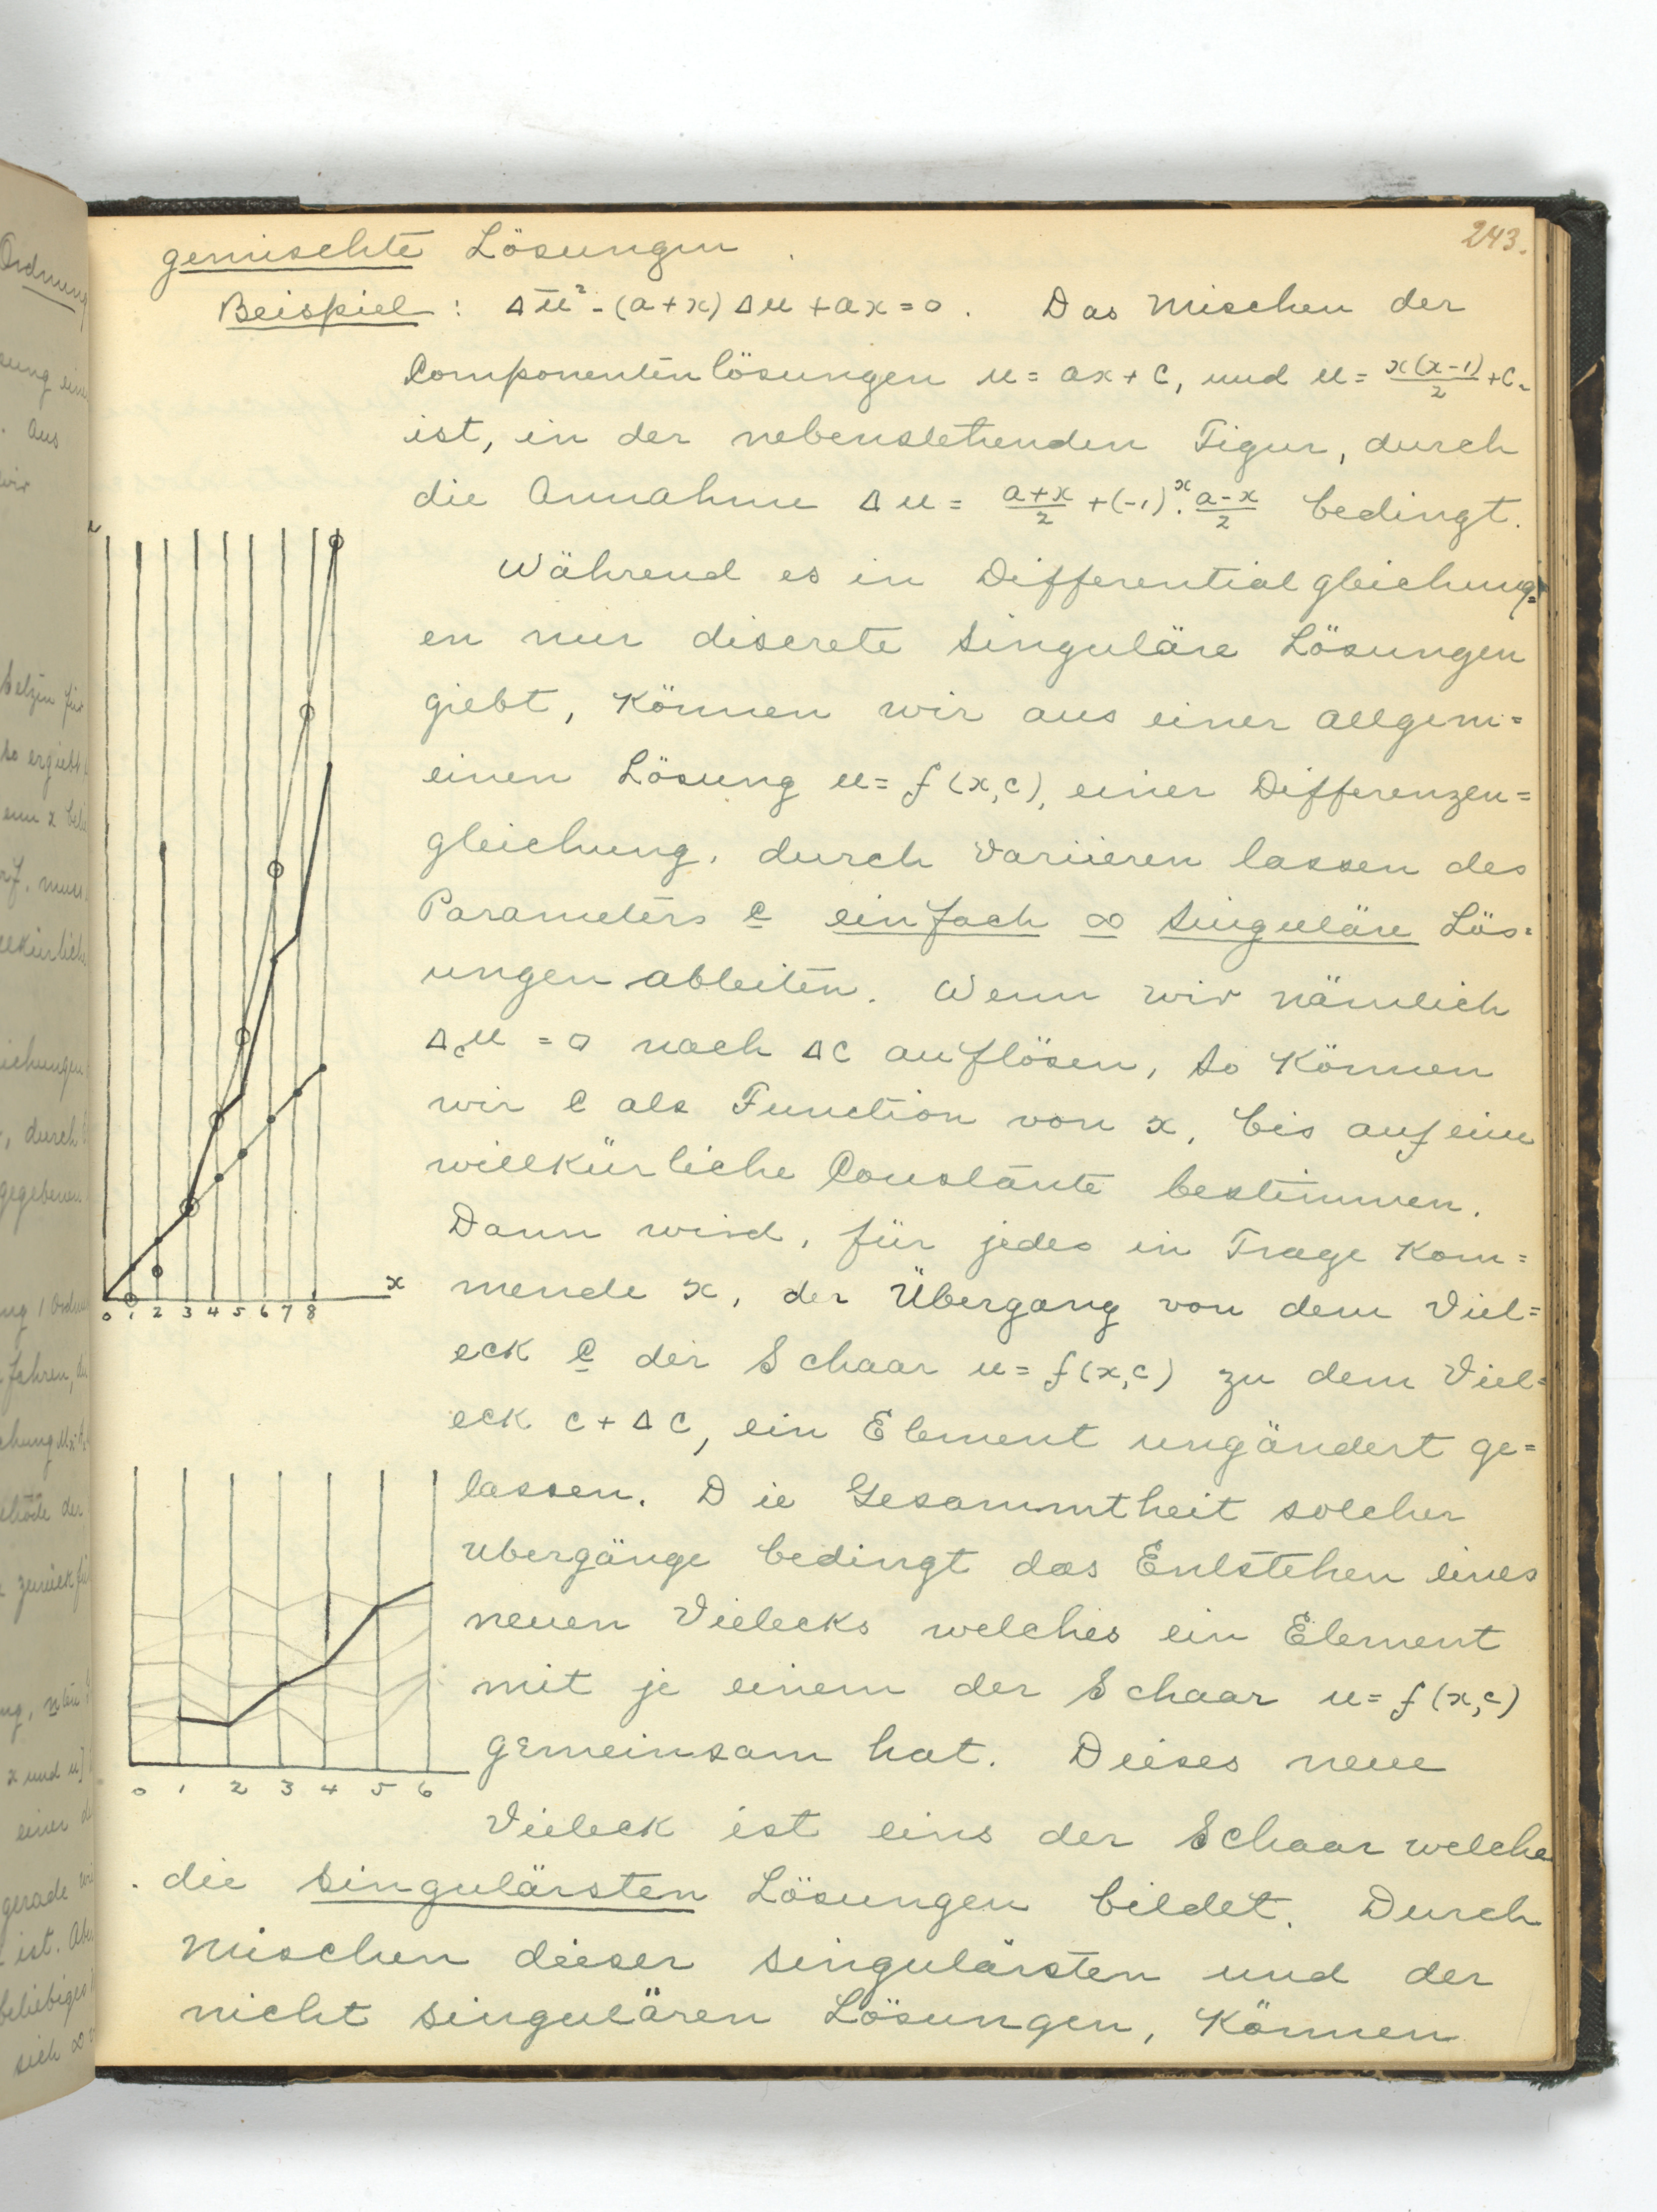 243.
gemischte Lösungen.
Beispiel: Δu̅² - (a+x) Δu + ax = 0. Das Mischen der
Componentenlösungen u = ax + C, und u = x(x-1)/2 + C.
ist, in der nebenstehenden Figur, durch
die Annahme Δu = (a+x)/2 + (-1)^x . (a-x)/2 bedingt.
Während es in Differentialgleichung=
en nur discrete singuläre Lösungen
giebt, können wir aus einer allgem=
einen Lösung u = f(x,c), einer Differenzen=
gleichung, durch Variieren lassen des
Parameters C einfach ∞ singuläre Lös=
ungen ableiten. Wenn wir nämlich
Δ_c u = 0 nach ΔC auflösen, so können
wir C als Function von x, bis auf eine
willkürliche Constante bestimmen.
Dann wird, für jedes in Frage kom=
mende x, der Übergang von dem Viel=
eck C der Schaar u = f(x,c) zu dem Viel=
eck C + ΔC, ein Element ungändert ge=
lassen. Die Gesammtheit solcher
Übergänge bedingt das Entstehen eines
neuen Vielecks welches ein Element
mit je einem der Schaar u = f(x,c)
gemeinsam hat. Dieses neue
Vieleck ist eins der Schaar welche
die singulärsten Lösungen bildet. Durch
Mischen dieser singulärsten und der
nicht singulären Lösungen, können
u
x
0 1 2 3 4 5 6 7 8
0 1 2 3 4 5 6
Ordnung
Aus
wir
so ergiebt
durch
gegebenen
x und u]
einer
gerade
ist.
beliebiges
sich ∞